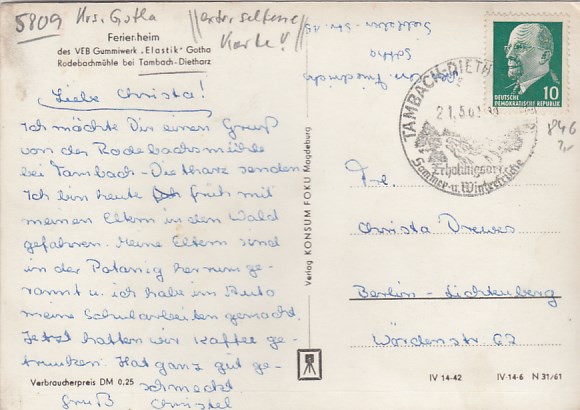 5809 Krs. Gotha
extrem seltene
Karte!
Ferienheim
des VEB Gummiwerk „Elastik" Gotha
Rodebachmühle bei Tambach-Dietharz
Liebe Christa!
Ich möchte Dir einen Gruß
von der Rodebachsmühle
bei Tambach-Dietharz senden.
Ich bin heute früh mit
meinen Eltern in den Wald
gefahren. Meine Eltern sind
in der Botanig herrum ge-
rannt u. ich habe im Auto
meine Schularbeiten gemacht.
Jetzt hatten wir Kaffee ge-
trunken. Hat ganz gut ge-
schmeckt
Gruß Christel
Verbraucherpreis DM 0,25
Verlag KONSUM FOKU Magdeburg
Gotha
DEUTSCHE
DEMOKRATISCHE REPUBLIK
10
TAMBACH-DIETH
21.5.6
Erholungsort
Sommer-u. Winterfrische
846
2,-
Frl.
Christa Drewes
Berlin-Lichtenberg
Wördenstr 62
IV 14-42 IV-14-6 N 31/61